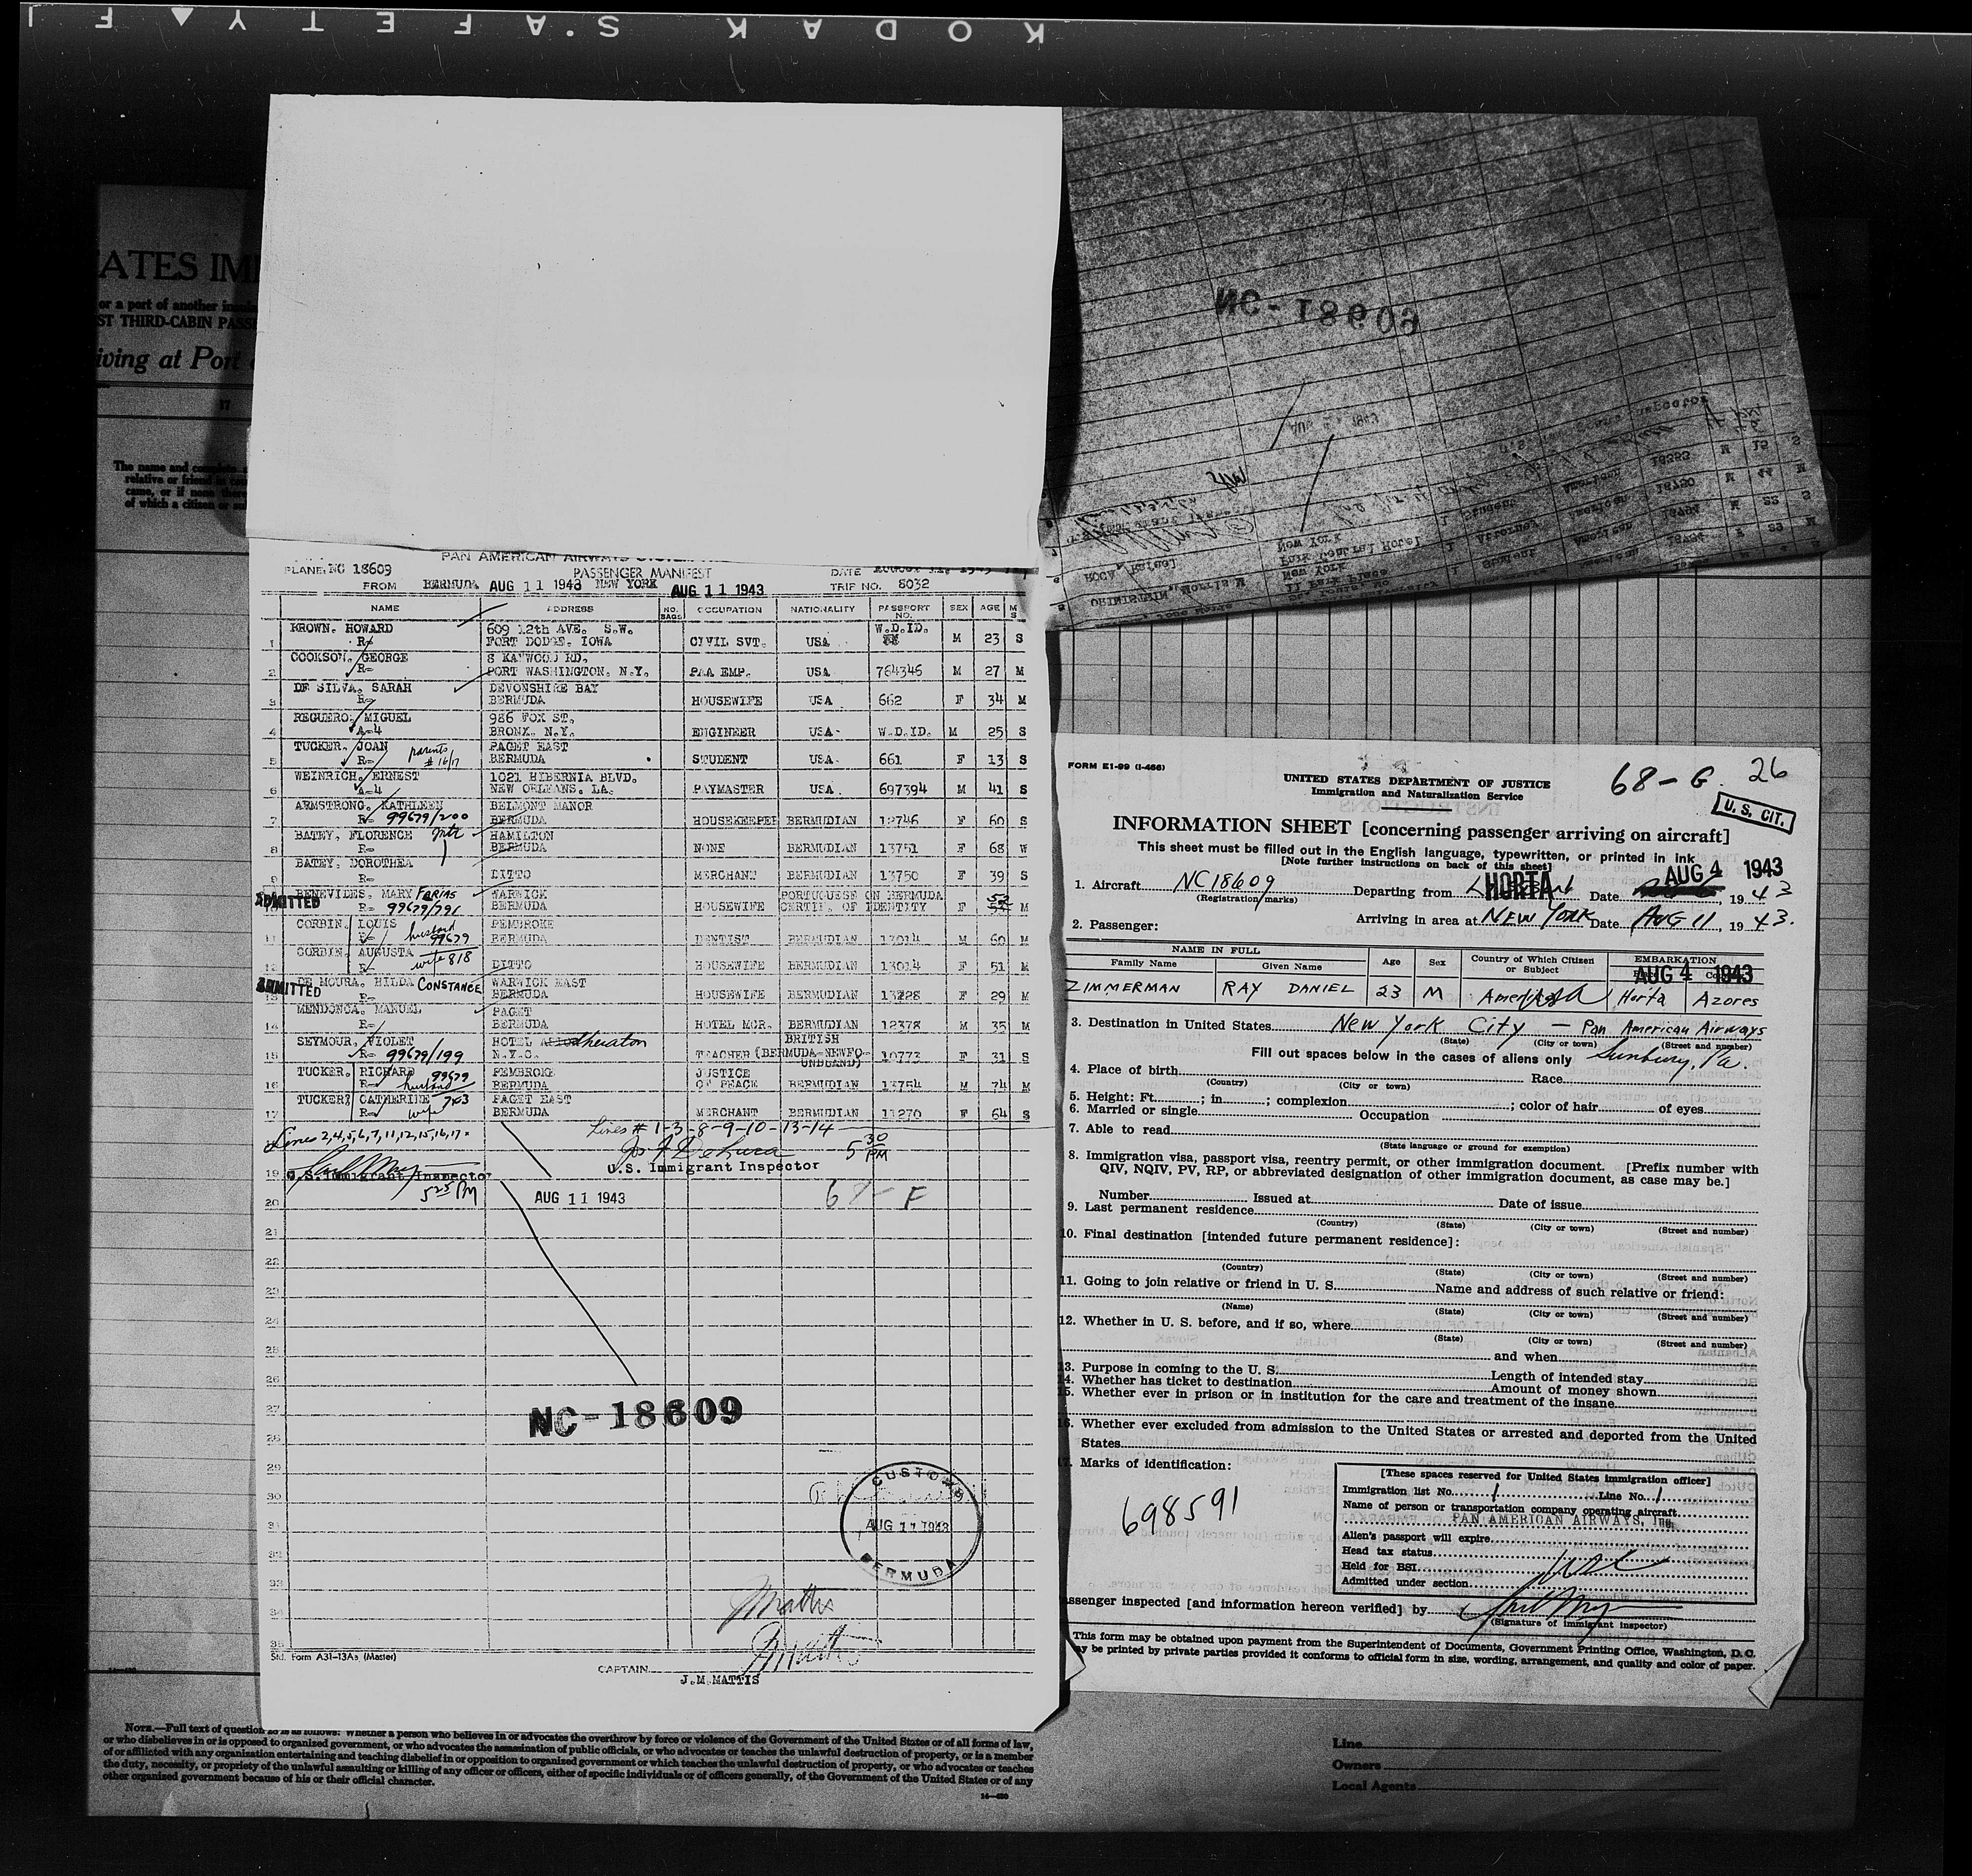 KODAK S.AFETY F
ATES IM
or a port of another
ST THIRD-CABIN PASS
iving at Port
17
The name and
relative or friend
came, or if none
of which a citizen or
PAN AMERICAN AIRWAYS
PLANE: NC 18609
PASSENGER MANIFEST
DATE
FROM BERMUDA AUG 11 1943 NEW YORK AUG 11 1943 TRIP NO. 8032
NAME ADDRESS NO. BAGS OCCUPATION NATIONALITY PASSPORT NO. SEX AGE M S
BROWN, HOWARD 609 12th AVE. S.W. W.D.ID.
1 R- FORT DODGE, IOWA CIVIL SVT. USA M 23 S
COOKSON, GEORGE 8 KAYWOOD RD.
2 R- PORT WASHINGTON, N.Y. PAA EMP. USA 764346 M 27 M
DE SILVA, SARAH DEVONSHIRE BAY
3 R- BERMUDA HOUSEWIFE USA 662 F 34 M
REGUERO, MIGUEL 986 FOX ST.
4 A-4 BRONX, N.Y. ENGINEER USA W.D.ID. M 25 S
TUCKER, JOAN parents PAGET EAST
5 R- # 16/17 BERMUDA STUDENT USA 661 F 13 S
WEINRICH, ERNEST 1021 HIBERNIA BLVD.
6 A-4 NEW ORLEANS, LA. PAYMASTER USA 697394 M 41 S
ARMSTRONG, KATHLEEN BELMONT MANOR
7 R- 99679/200 BERMUDA HOUSEKEEPER BERMUDIAN 12746 F 60 S
BATEY, FLORENCE HAMILTON
8 R- BERMUDA NONE BERMUDIAN 13751 F 68 W
BATEY, DOROTHEA
9 R- DITTO MERCHANT BERMUDIAN 13750 F 39 S
BENEVIDES, MARY FARIAS WARWICK PORTUGUESE ON BERMUDA 52
ADMITTED 10 R- 99679/791 BERMUDA HOUSEWIFE CERTIF. OF IDENTITY F 53 M
CORBIN, LOUIS husband PEMBROKE
11 R- 99679 BERMUDA DENTIST BERMUDIAN 13014 M 60 M
CORBIN, AUGUSTA wife 818
12 R- DITTO HOUSEWIFE BERMUDIAN 13014 F 51 M
DE MOURA, HILDA CONSTANCE WARWICK EAST
ADMITTED 13 R- BERMUDA HOUSEWIFE BERMUDIAN 13228 F 29 M
MENDONCA, MANUEL PAGET
14 R- BERMUDA HOTEL MGR. BERMUDIAN 12378 M 35 M
SEYMOUR, VIOLET HOTEL BRITISH
15 R- 99679/199 N.Y.C. TEACHER (BERMUDA-NEWFOUNDLAND) 10773 F 31 S
TUCKER, RICHARD 99679 PEMBROKE JUSTICE
16 R- husband BERMUDA OF PEACE BERMUDIAN 13754 M 74 M
TUCKER, CATHERINE 743 PAGET EAST
17 R- wife BERMUDA MERCHANT BERMUDIAN 11270 F 64 S
Lines 2,4,5,6,7,11,12,15,16,17-
Lines # 1-3-8-9-10-13-14
5 30 PM
19 U.S. Immigrant Inspector
U.S. Immigrant Inspector
5 25 PM
20
AUG 11 1943
F
21
22
23
24
25
26
27
NC-18609
28
29
30
31
32
33
34
35
CUSTOMS
AUG 11 1943
BERMUDA
Mattis
Std. Form A31-13As (Master)
CAPTAIN
J.M.MATTIS
NC-18609
FORM E1-99 (I-466)
68-G. 26
UNITED STATES DEPARTMENT OF JUSTICE
Immigration and Naturalization Service
U. S. CIT.
INFORMATION SHEET [concerning passenger arriving on aircraft]
This sheet must be filled out in the English language, typewritten, or printed in ink
[Note further instructions on back of this sheet]
AUG 4 1943
1. Aircraft NC18609 Departing from HORTA Date , 1943
(Registration marks)
Arriving in area at NEW YORK Date AUG 11, 1943.
2. Passenger:
NAME IN FULL
Family Name Given Name Age Sex Country of Which Citizen or Subject EMBARKATION
AUG 4 1943
ZIMMERMAN RAY DANIEL 23 M American Horta Azores
3. Destination in United States New York City - Pan American Airways
(State) (City or town) (Street and number)
Fill out spaces below in the cases of aliens only Sunbury, Pa.
4. Place of birth Race
(Country) (City or town)
5. Height: Ft. ; in. ; complexion ; color of hair of eyes
6. Married or single Occupation
7. Able to read
(State language or ground for exemption)
8. Immigration visa, passport visa, reentry permit, or other immigration document. [Prefix number with
QIV, NQIV, PV, RP, or abbreviated designation of other immigration document, as case may be.]
Number Issued at Date of issue
9. Last permanent residence
(Country) (State) (City or town) (Street and number)
10. Final destination [intended future permanent residence]:
(Country) (State) (City or town) (Street and number)
11. Going to join relative or friend in U. S. Name and address of such relative or friend:
(Name) (State) (City or town) (Street and number)
12. Whether in U. S. before, and if so, where
(State) (City or town) (Street and number)
and when
13. Purpose in coming to the U. S. Length of intended stay
14. Whether has ticket to destination Amount of money shown
15. Whether ever in prison or in institution for the care and treatment of the insane
16. Whether ever excluded from admission to the United States or arrested and deported from the United
States
17. Marks of identification:
698591
[These spaces reserved for United States immigration officer]
Immigration list No. 1 Line No. 1
Name of person or transportation company operating aircraft
PAN AMERICAN AIRWAYS, Inc.
Alien's passport will expire
Head tax status
Held for BSI
Admitted under section
ssenger inspected [and information hereon verified] by
(Signature of immigrant inspector)
This form may be obtained upon payment from the Superintendent of Documents, Government Printing Office, Washington, D. C.
ay be printed by private parties provided it conforms to official form in size, wording, arrangement, and quality and color of paper.
NOTE.—Full text of question is as follows: Whether a person who believes in or advocates the overthrow by force or violence of the Government of the United States or of all forms of law,
or who disbelieves in or is opposed to organized government, or who advocates the assassination of public officials, or who advocates or teaches the unlawful destruction of property, or is a member
of or affiliated with any organization entertaining and teaching disbelief in or opposition to organized government or which teaches the unlawful destruction of property, or who advocates or teaches
the duty, necessity, or propriety of the unlawful assaulting or killing of any officer or officers, either of specific individuals or of officers generally, of the Government of the United States or of any
other organized government because of his or their official character.
Line
Owners
Local Agents